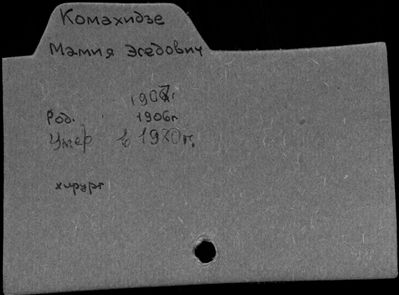 Комахидзе
Мамия Эседович
1907г
Род. 1906г
Умер в 1970г.
хирург